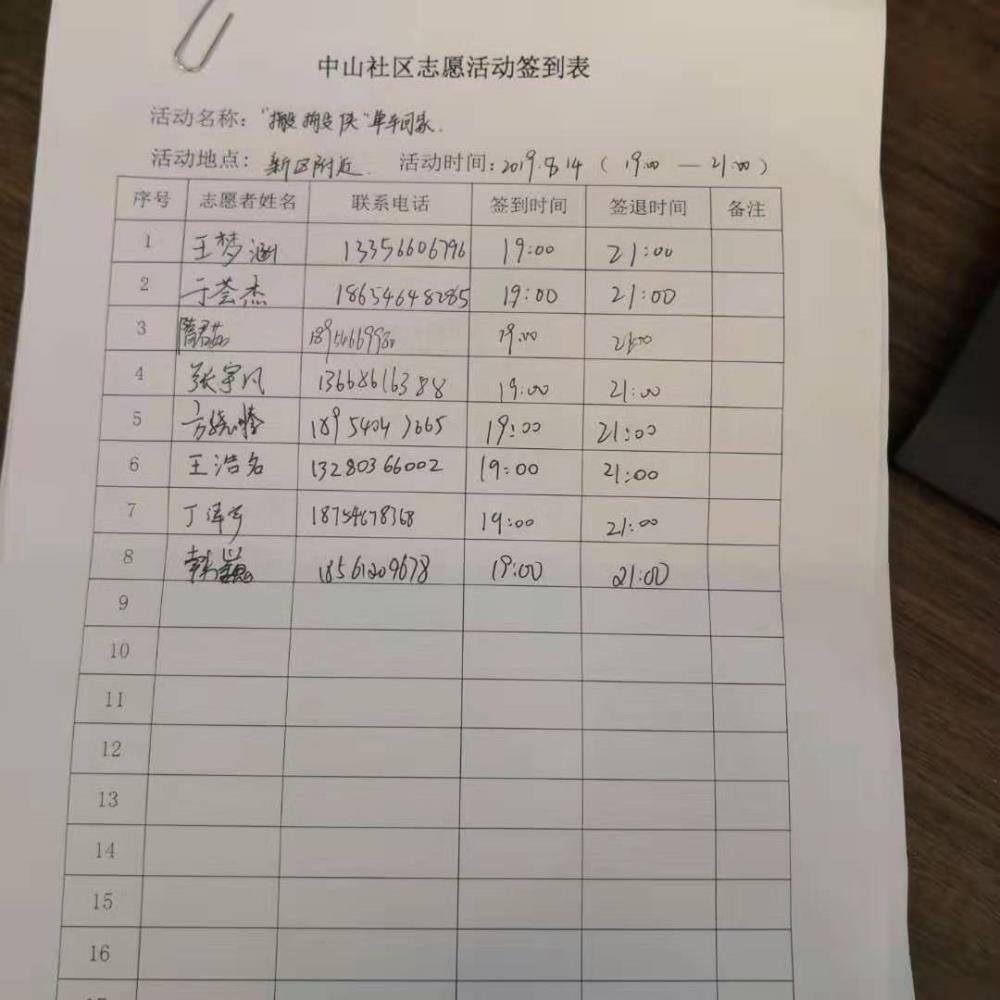 中山社区志愿活动签到表
活动名称："搬搬侠"单车回家.
活动地点：新区附近. 活动时间：2019.8.14（19:00 — 21:00）
序号 志愿者姓名 联系电话 签到时间 签退时间 备注
1 王梦涵 13356606796 19:00 21:00
2 于荟杰 18654648285 19:00 21:00
3 19:00 21:00
4 张宇凡 13668616388 19:00 21:00
5 19:00 21:00
6 王浩名 13280366002 19:00 21:00
7 丁泽宇 18754678368 19:00 21:00
8 韩巍 18561209678 19:00 21:00
9
10
11
12
13
14
15
16